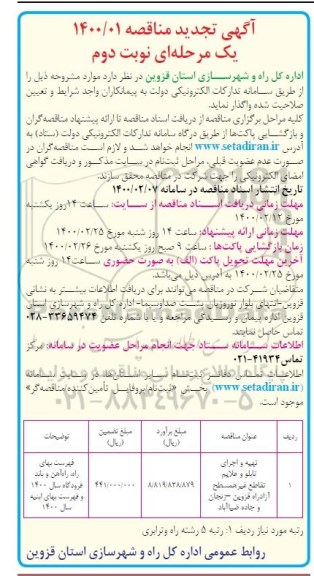 آگهی تجدید مناقصه ۱۴۰۰/۰۱
یک مرحله‌ای نوبت دوم
اداره کل راه و شهرسازی استان قزوین در نظر دارد موارد مشروحه ذیل را
از طریق سامانه تدارکات الکترونیکی دولت به پیمانکاران واجد شرایط و تعیین
صلاحیت شده واگذار نماید.
کلیه مراحل برگزاری مناقصه از دریافت اسناد مناقصه تا ارائه پیشنهاد مناقصه‌گران
و بازگشایی پاکت‌ها از طریق درگاه سامانه تدارکات الکترونیکی دولت (ستاد) به
آدرس www.setadiran.ir انجام خواهد شد و لازم است مناقصه‌گران در
صورت عدم عضویت قبلی، مراحل ثبت‌نام در سایت مذکور و دریافت گواهی
امضای الکترونیکی را جهت شرکت در مناقصه محقق سازند.
تاریخ انتشار اسناد مناقصه در سامانه ۱۴۰۰/۰۲/۰۷
مهلت زمانی دریافت اسناد مناقصه از سایت: ساعت ۱۴ روز یکشنبه
مورخ ۱۴۰۰/۰۲/۱۲
مهلت زمانی ارائه پیشنهاد: ساعت ۱۴ روز شنبه مورخ ۱۴۰۰/۰۲/۲۵
زمان بازگشایی پاکت‌ها: ساعت ۹ صبح روز یکشنبه مورخ ۱۴۰۰/۰۲/۲۶
آخرین مهلت تحویل پاکت (الف) به صورت حضوری ساعت ۱۴ روز شنبه
مورخ ۱۴۰۰/۰۲/۲۵ به آدرس ذیل می‌باشد.
متقاضیان شرکت در مناقصه می‌توانند برای دریافت اطلاعات بیشتر به نشانی
قزوین-انتهای بلوار نوروزیان پشت صداوسیما- اداره کل راه و شهرسازی استان
قزوین اداره پیمان و رسیدگی مراجعه و یا با شماره تلفن ۳۳۶۵۹۴۷۴-۰۲۸
تماس حاصل نمایند.
اطلاعات سامانه ستاد جهت انجام مراحل عضویت در سامانه: مرکز
تماس ۴۱۹۳۴-۰۲۱
اطلاعات تماس دفاتر ثبت‌نام سایر استان‌ها، در سایت سامانه
(www.setadiran.ir) بخش «ثبت‌نام/پروفایل تأمین‌کننده/مناقصه‌گر»
موجود است.
۰۲۱-۸۸۳۴۹۶۷۰-۵
ردیف عنوان مناقصه مبلغ برآورد (ریال) مبلغ تضمین (ریال) توضیحات
۱ تهیه و اجرای تابلو و علایم تقاطع غیرهمسطح آزادراه قزوین – زنجان و جاده ضیاآباد ۸/۸۱۹/۸۳۸/۸۷۹ ۴۴۱/۰۰۰/۰۰۰ فهرست بهای راه، راه‌آهن و باند فرودگاه سال ۱۴۰۰ و فهرست بهای ابنیه سال ۱۴۰۰
رتبه مورد نیاز ردیف ۱: رتبه ۵ رشته راه وترابری
روابط عمومی اداره کل راه و شهرسازی استان قزوین